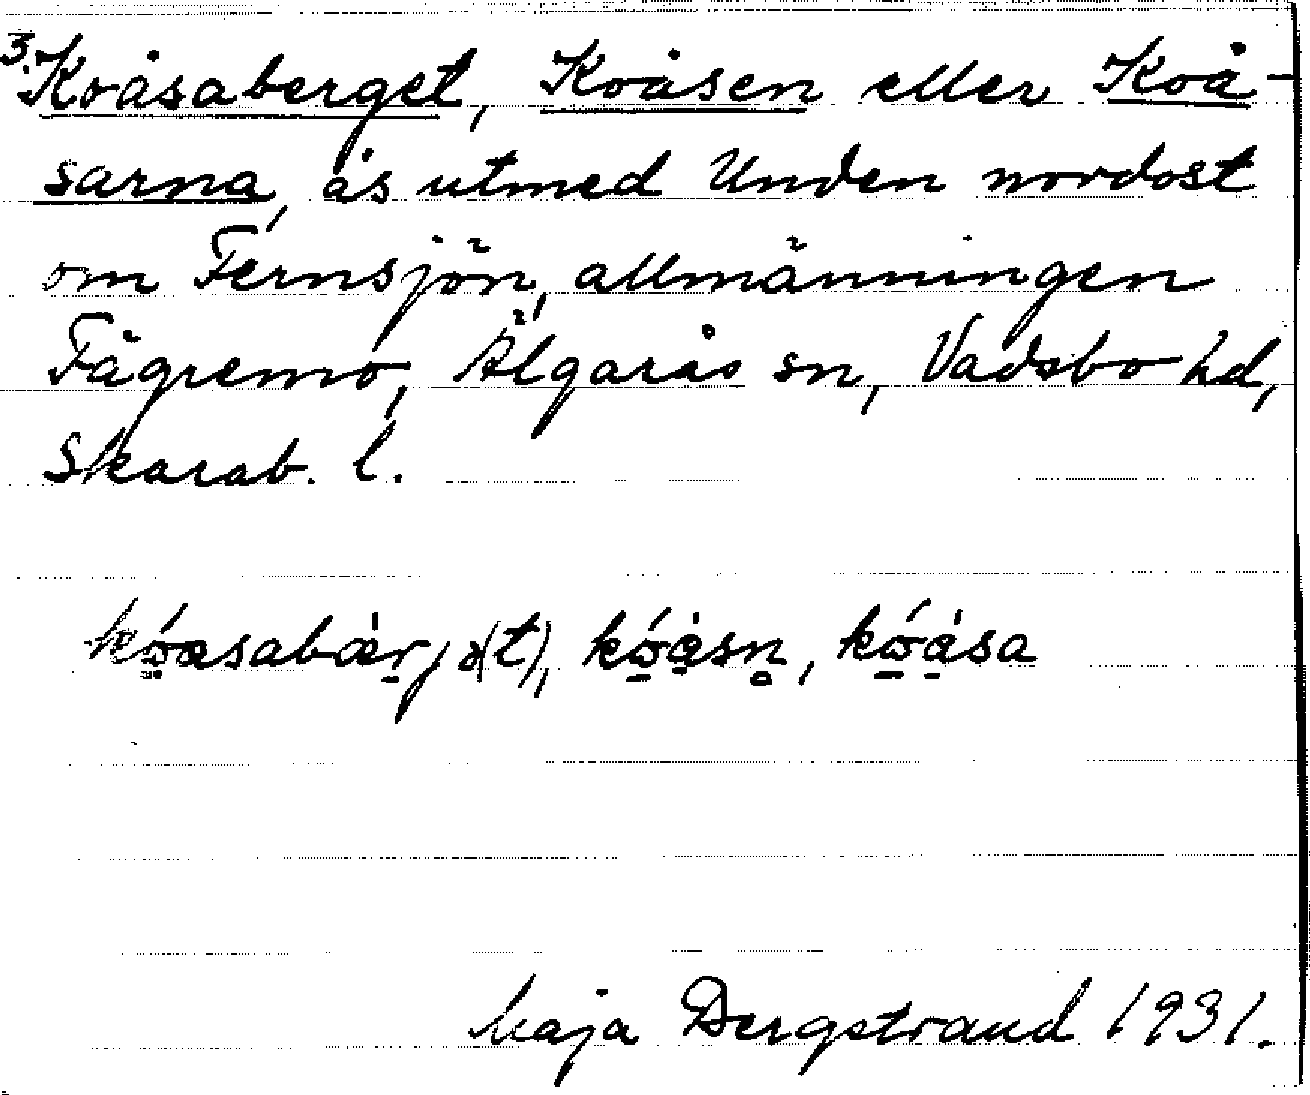 3. Koåsaberget, Koåsen eller Koå-
sarna, ås utmed Unden nordost
om Fernsjön, allmänningen
Fägremo, Älgarås sn, Vadsbo hd,
Skarab. l.
kó̤asabàrjə(t), kó̱à̱sn̥, kó̱à̱sa
Maja Bergstrand 1931.